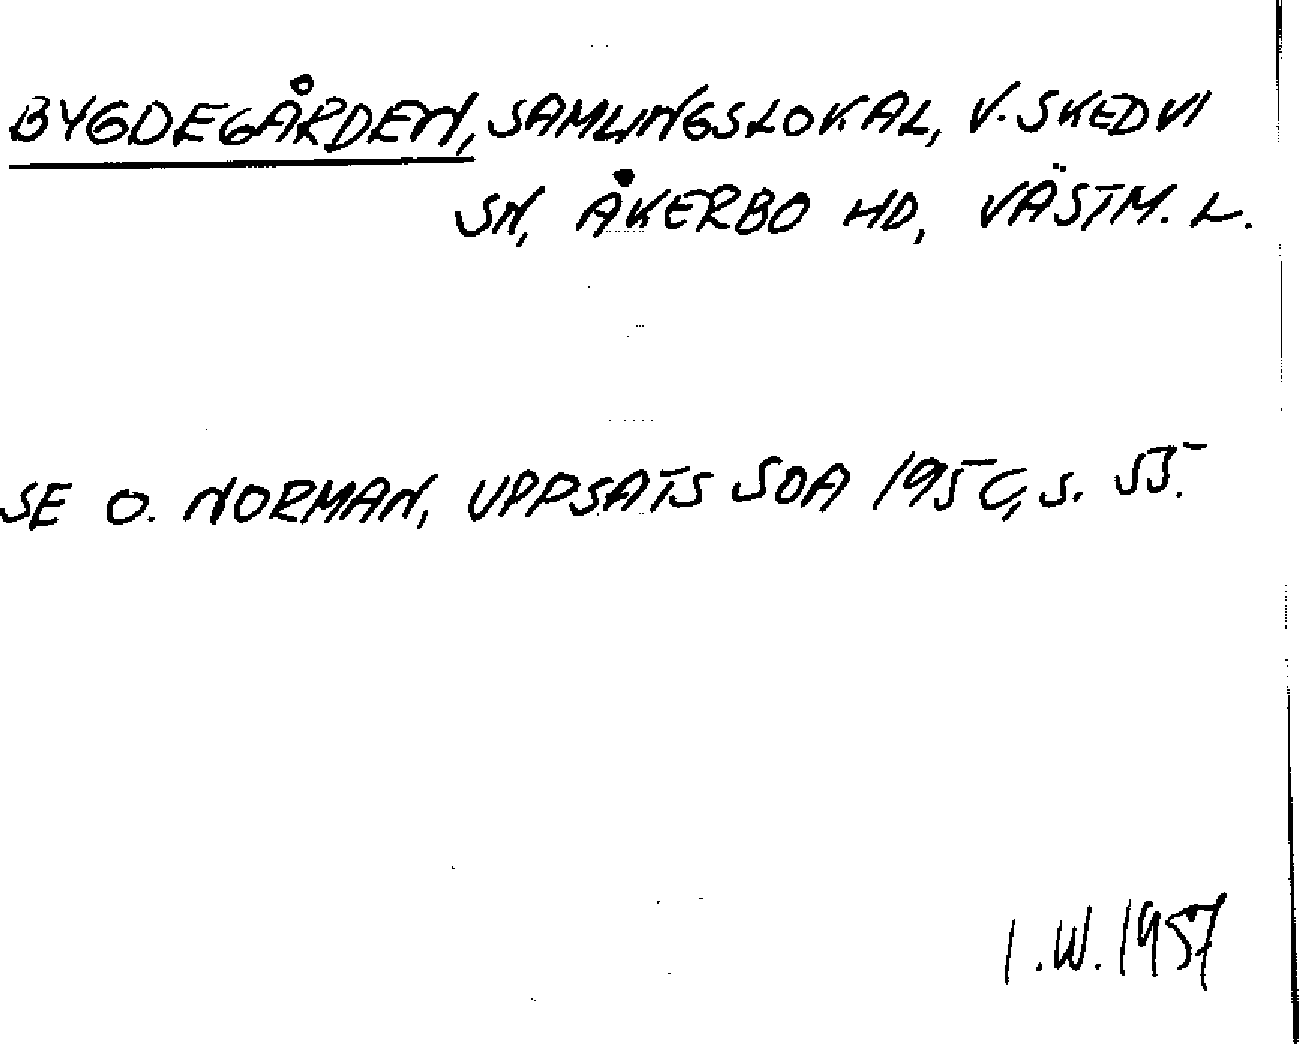 BYGDEGÅRDEN, SAMLINGSLOKAL, V. SKEDVI
SN, ÅKERBO HD, VÄSTM. L.
SE O. NORMAN, UPPSATS SOA 1956, s. 55.
I.W. 1957